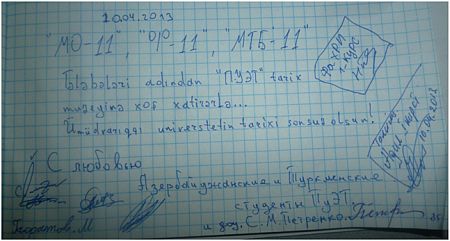 10.04.2013
"МО-11", "ФР-11", "МТБ-11"
Tələbələri adından "ПУЭТ" tarix
muzeyinə xoş xatirərlə...
Ümüdvarıqqi universtetin tarixi sonsuz olsun!
С любовью
Азербайджанские и Туркменские
студенты ПУЭТ
и доц. С. М. Петренко.
10.04.2013